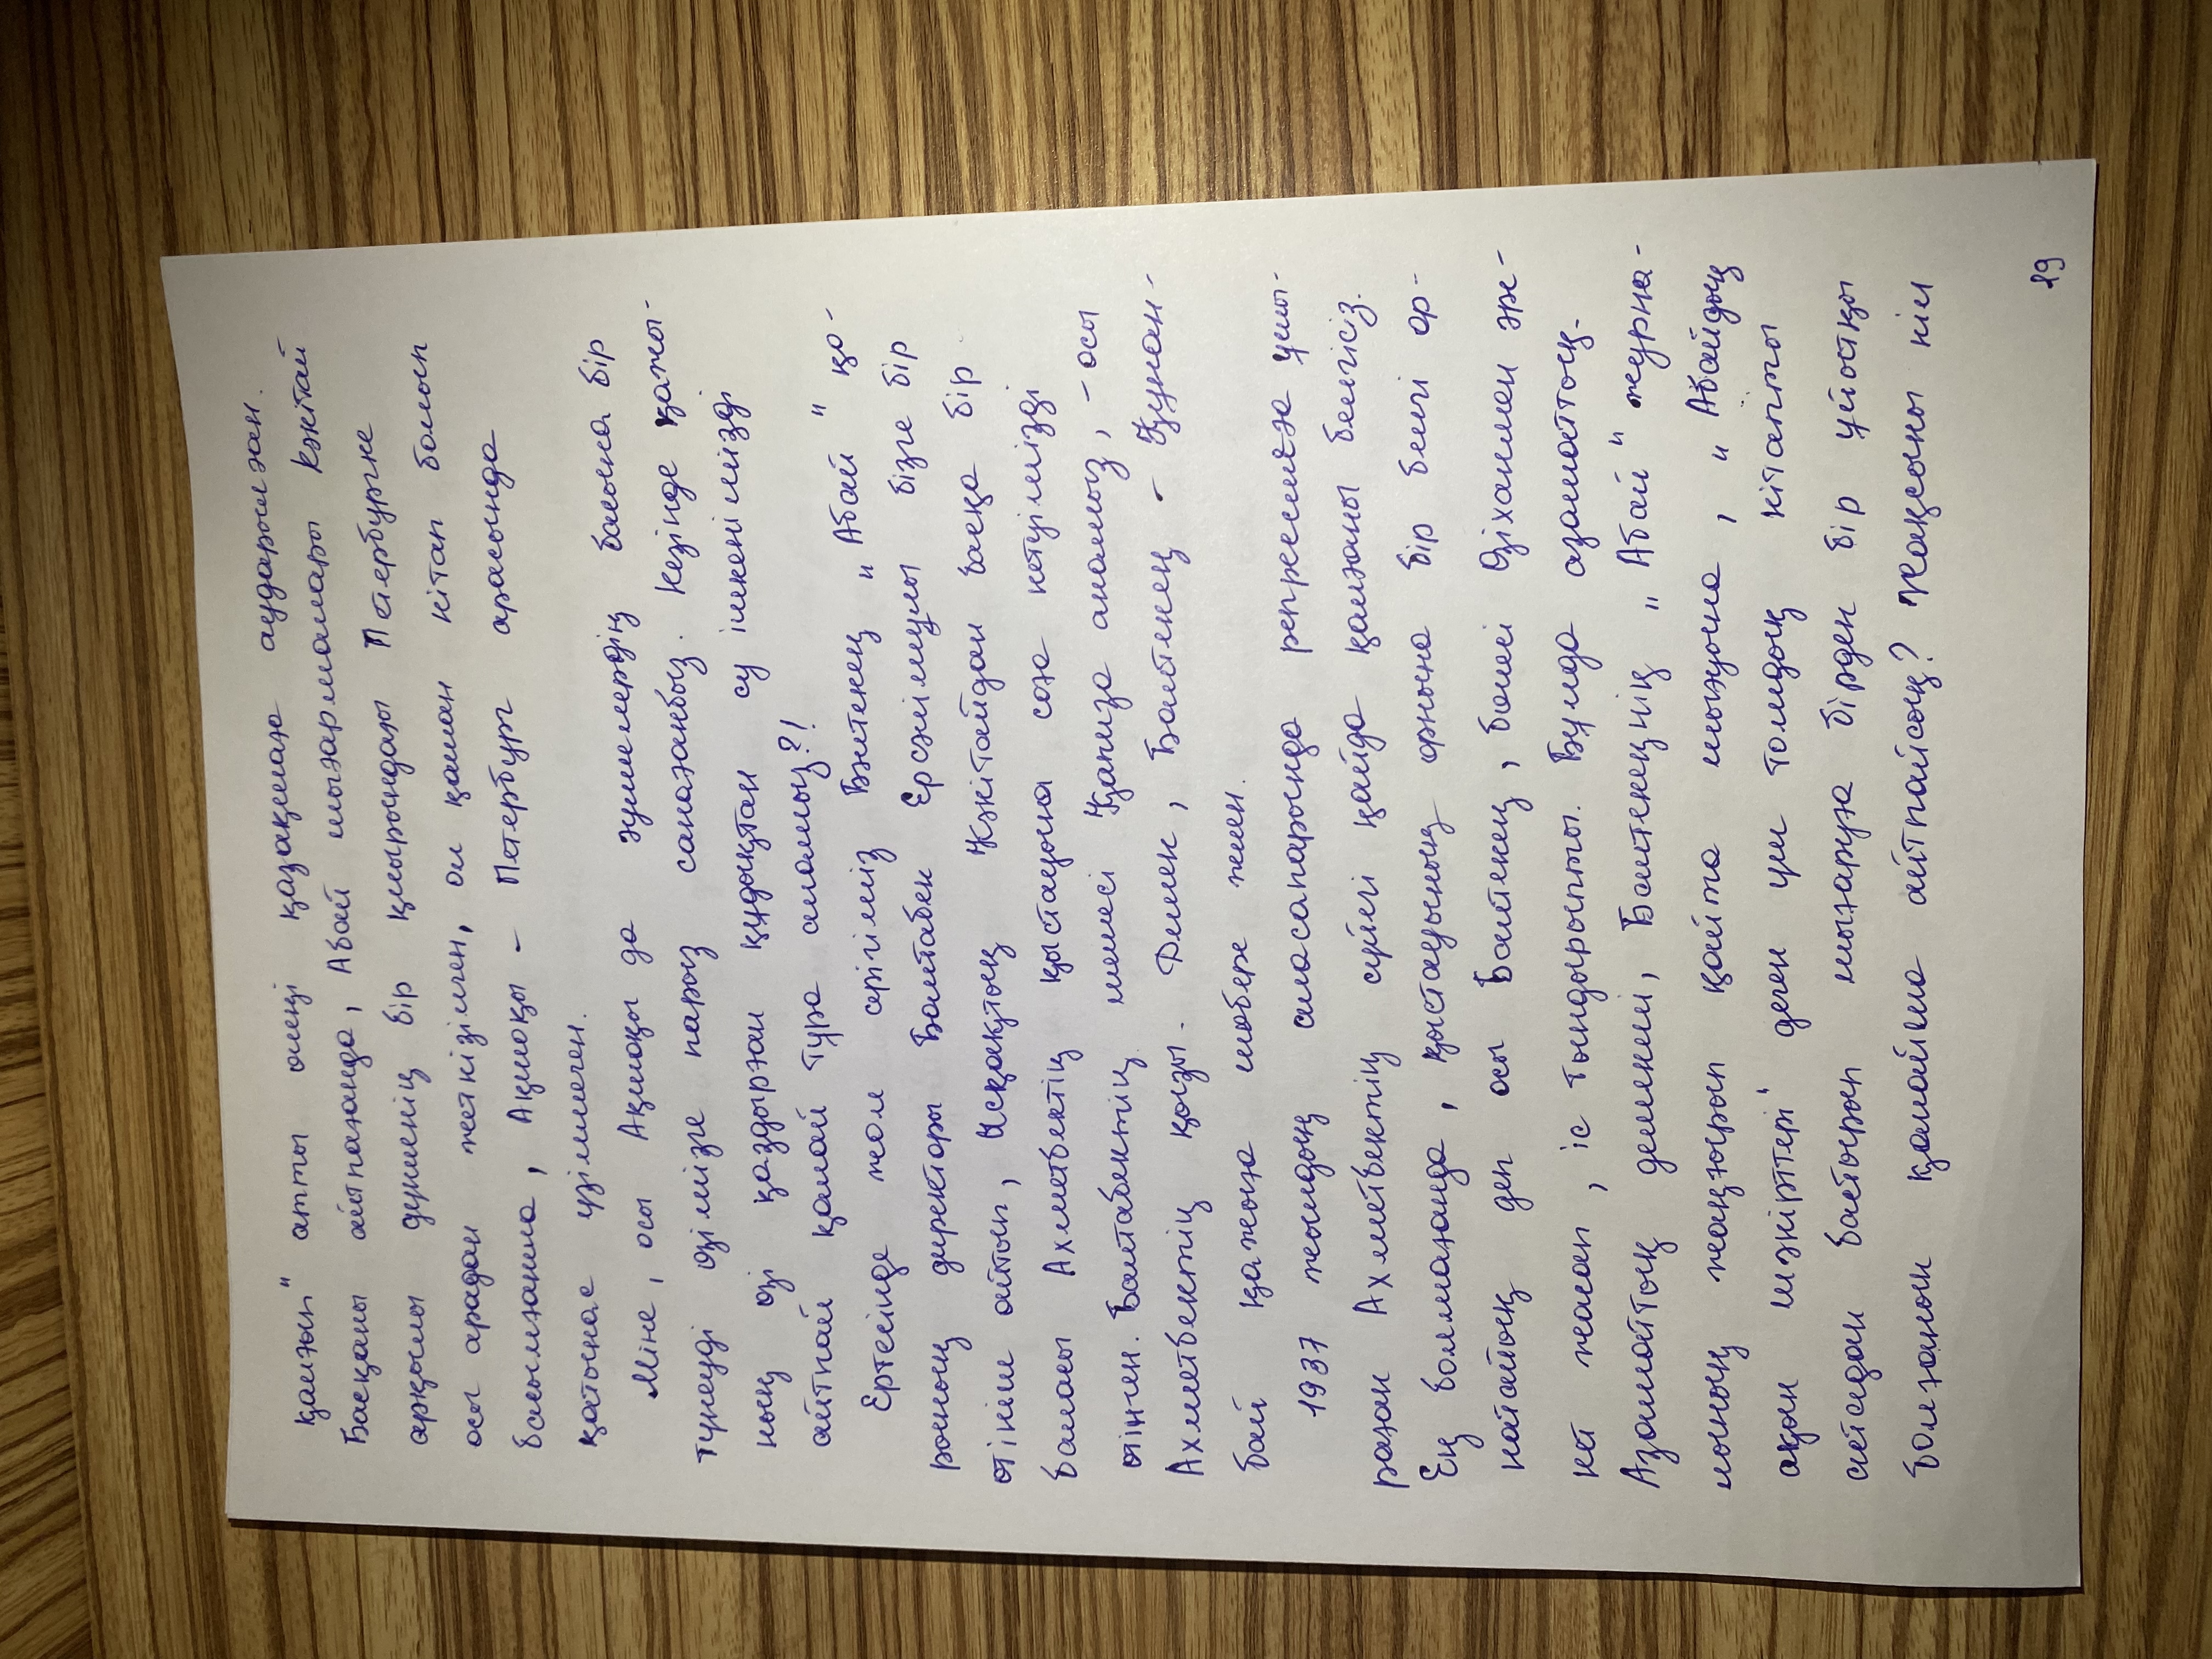 қалғып" атты өлеңі қазақшаға аударылған.
Басқаны айтпағанда, Абай шығармалары Кәкітай
арқылы дүниенің бір қиырындағы Петербургке
осы арадан жеткізілген, ол қашан кітап болып
басылғанша, Ақшоқы – Петербург арасында
қатынас үзілмеген.
Міне, осы Ақшоқы да әулиелердің басына бір
түнеуді өзімізге парыз санағанбыз. Кезінде қажы-
ның өзі қаздырған құдықтан су ішкенімізді
айтпай қалай тұра аламыз?!
Ертесінде жол серігіміз Бәтекең „Абай" қо-
рының директоры Балтабек Ерсәлімұлы бізге бір
өтініш айтып, Ысқақтың Кәкітайдан басқа бір
баласы Ахметбектің қыстауына соға кетуімізді
өтінген. Балтабектің шешесі Қапиза анамыз, – осы
Ахметбектің қызы. Демек, Балтекең – Құнан-
бай қажыға шөбере жиен.
1937 жылдың аласапарында репрессияға ұшы-
раған Ахметбектің сүйегі қайда қалғаны белгісіз.
Ең болмағанда, қыстауының орнына бір белгі ор-
натайық деп осы Балтекең, бөлесі Өзіханмен әре-
кет жасап, іс тындырыпты. Бұлда азаматтық.
Азаматтық демекші, Балтекеңнің „Абай" журна-
лының жаңғырып қайта шығуына, „Абайдың
ақын шәкірттері" деген үш томдық кітапты
астадан бастырып шығаруға бірден бір ұйытқы
болғанын қалайша айтпайсың? Жақсыны кім
19